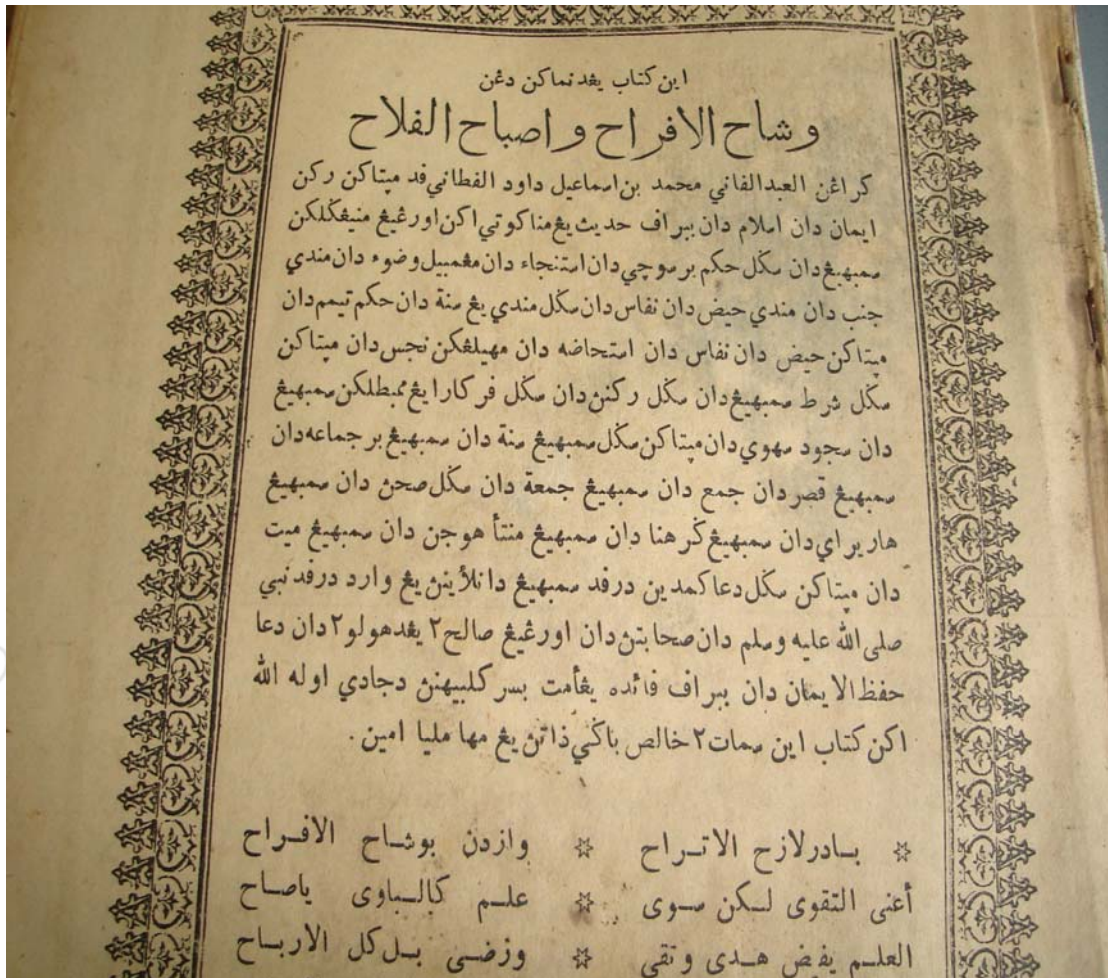 اين كتاب يڠدنماكن دڠن
وشاح الافراح واصباح الفلاح
كراڠن العبدالفاني محمد بن اسماعيل داود الفطاني فد مپتاكن ركن
ايمان دان اسلام دان ببراف حديث يڠ مناكوتي اكن اورڠيڠ منيڠݢلكن
سمبهيڠ دان سݢل حكم برسوچي دان استنجاء دان مڠمبيل وضوء دان مندي
جنب دان مندي حيض دان نفاس دان سݢل مندي يڠ سنة دان حكم تيمم دان
مپتاكن حيض دان نفاس دان استحاضه دان مهيلڠكن نجس دان مپتاكن
سݢل شرط سمبهيڠ دان سݢل ركنڽ دان سݢل فركارا يڠ ممبطلكن سمبهيڠ
دان سجود سهوي دان مپتاكن سݢل سمبهيڠ سنة دان سمبهيڠ برجماعه دان
سمبهيڠ قصر دان جمع دان سمبهيڠ جمعة دان سݢل صحڽ دان سمبهيڠ
هاريراي دان سمبهيڠ ݢرهنا دان سمبهيڠ منتأ هوجن دان سمبهيڠ ميت
دان مپتاكن سݢل دعا كمدين درفد سمبهيڠ دان لأينڽ يڠ وارد درفد نبي
صلى الله عليه وسلم دان صحابتڽ دان اورڠيڠ صالح٢ يڠدهولو٢ دان دعا
حفظ الايمان دان ببراف فائده يڠأمت بسر كلبيهنڽ دجادي اوله الله
اكن كتاب اين سمات٢ خالص باݢي ذاتڽ يڠ مها مليا امين .
۞ بادرلازح الاتراح ۞ وازدن بوشاح الافراح
أعنى التقوى لكن سوى ۞ علم كالباوى ياصاح
العلم يفض هدى وتقى ۞ وزضى بل كل الارباح